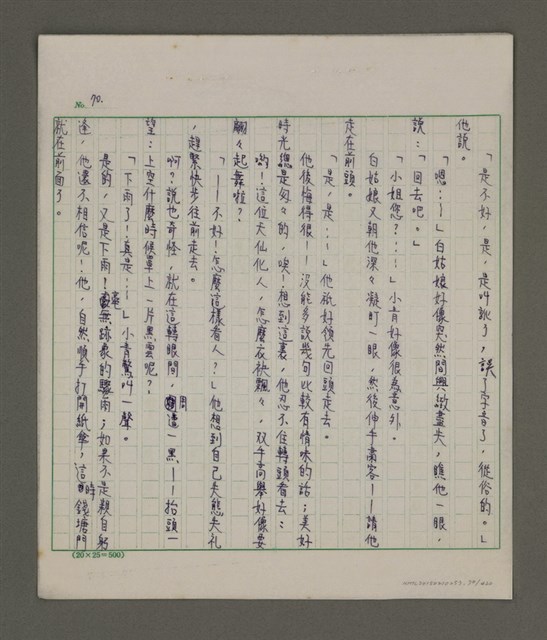 No. 70.
「是不好，是，是叫訛了，誤了字音了，從俗的。」
他說。
「嗯…」白姑娘好像突然間興緻盡失，瞧他一眼，
說：「回去吧。」
「小姐您？…」小青好像很為意外。
白姑娘又朝他深々凝盯一眼，然後伸手肅客——請他
走在前頭。
「是，是…」他祇好領先回頭走去。
他後悔得很！——沒能多說幾句比較有情味的話；美好
時光總是匆々的，唉！想到這裏，他忍不住轉頭看去：
喲！這位天仙化人，怎麼衣袂飄々，双手高舉好像要
翩々起舞啦？
「——不好！怎麼這樣看人？」他想到自己失態失礼
，趕緊快步往前走去。
啊？說也奇怪，就在這轉眼間，周遭一黑——抬頭一
望：上空什麼時候罩上一片黑雲呢？
「下雨了！真是…」小青驚叫一聲。
是的，又是下雨！毫無跡象的驟雨；如果不是親自躬
逢，他還不相信呢！他，自然順手打開紙傘，這時錢塘門
就在前面了。
(20×25=500)